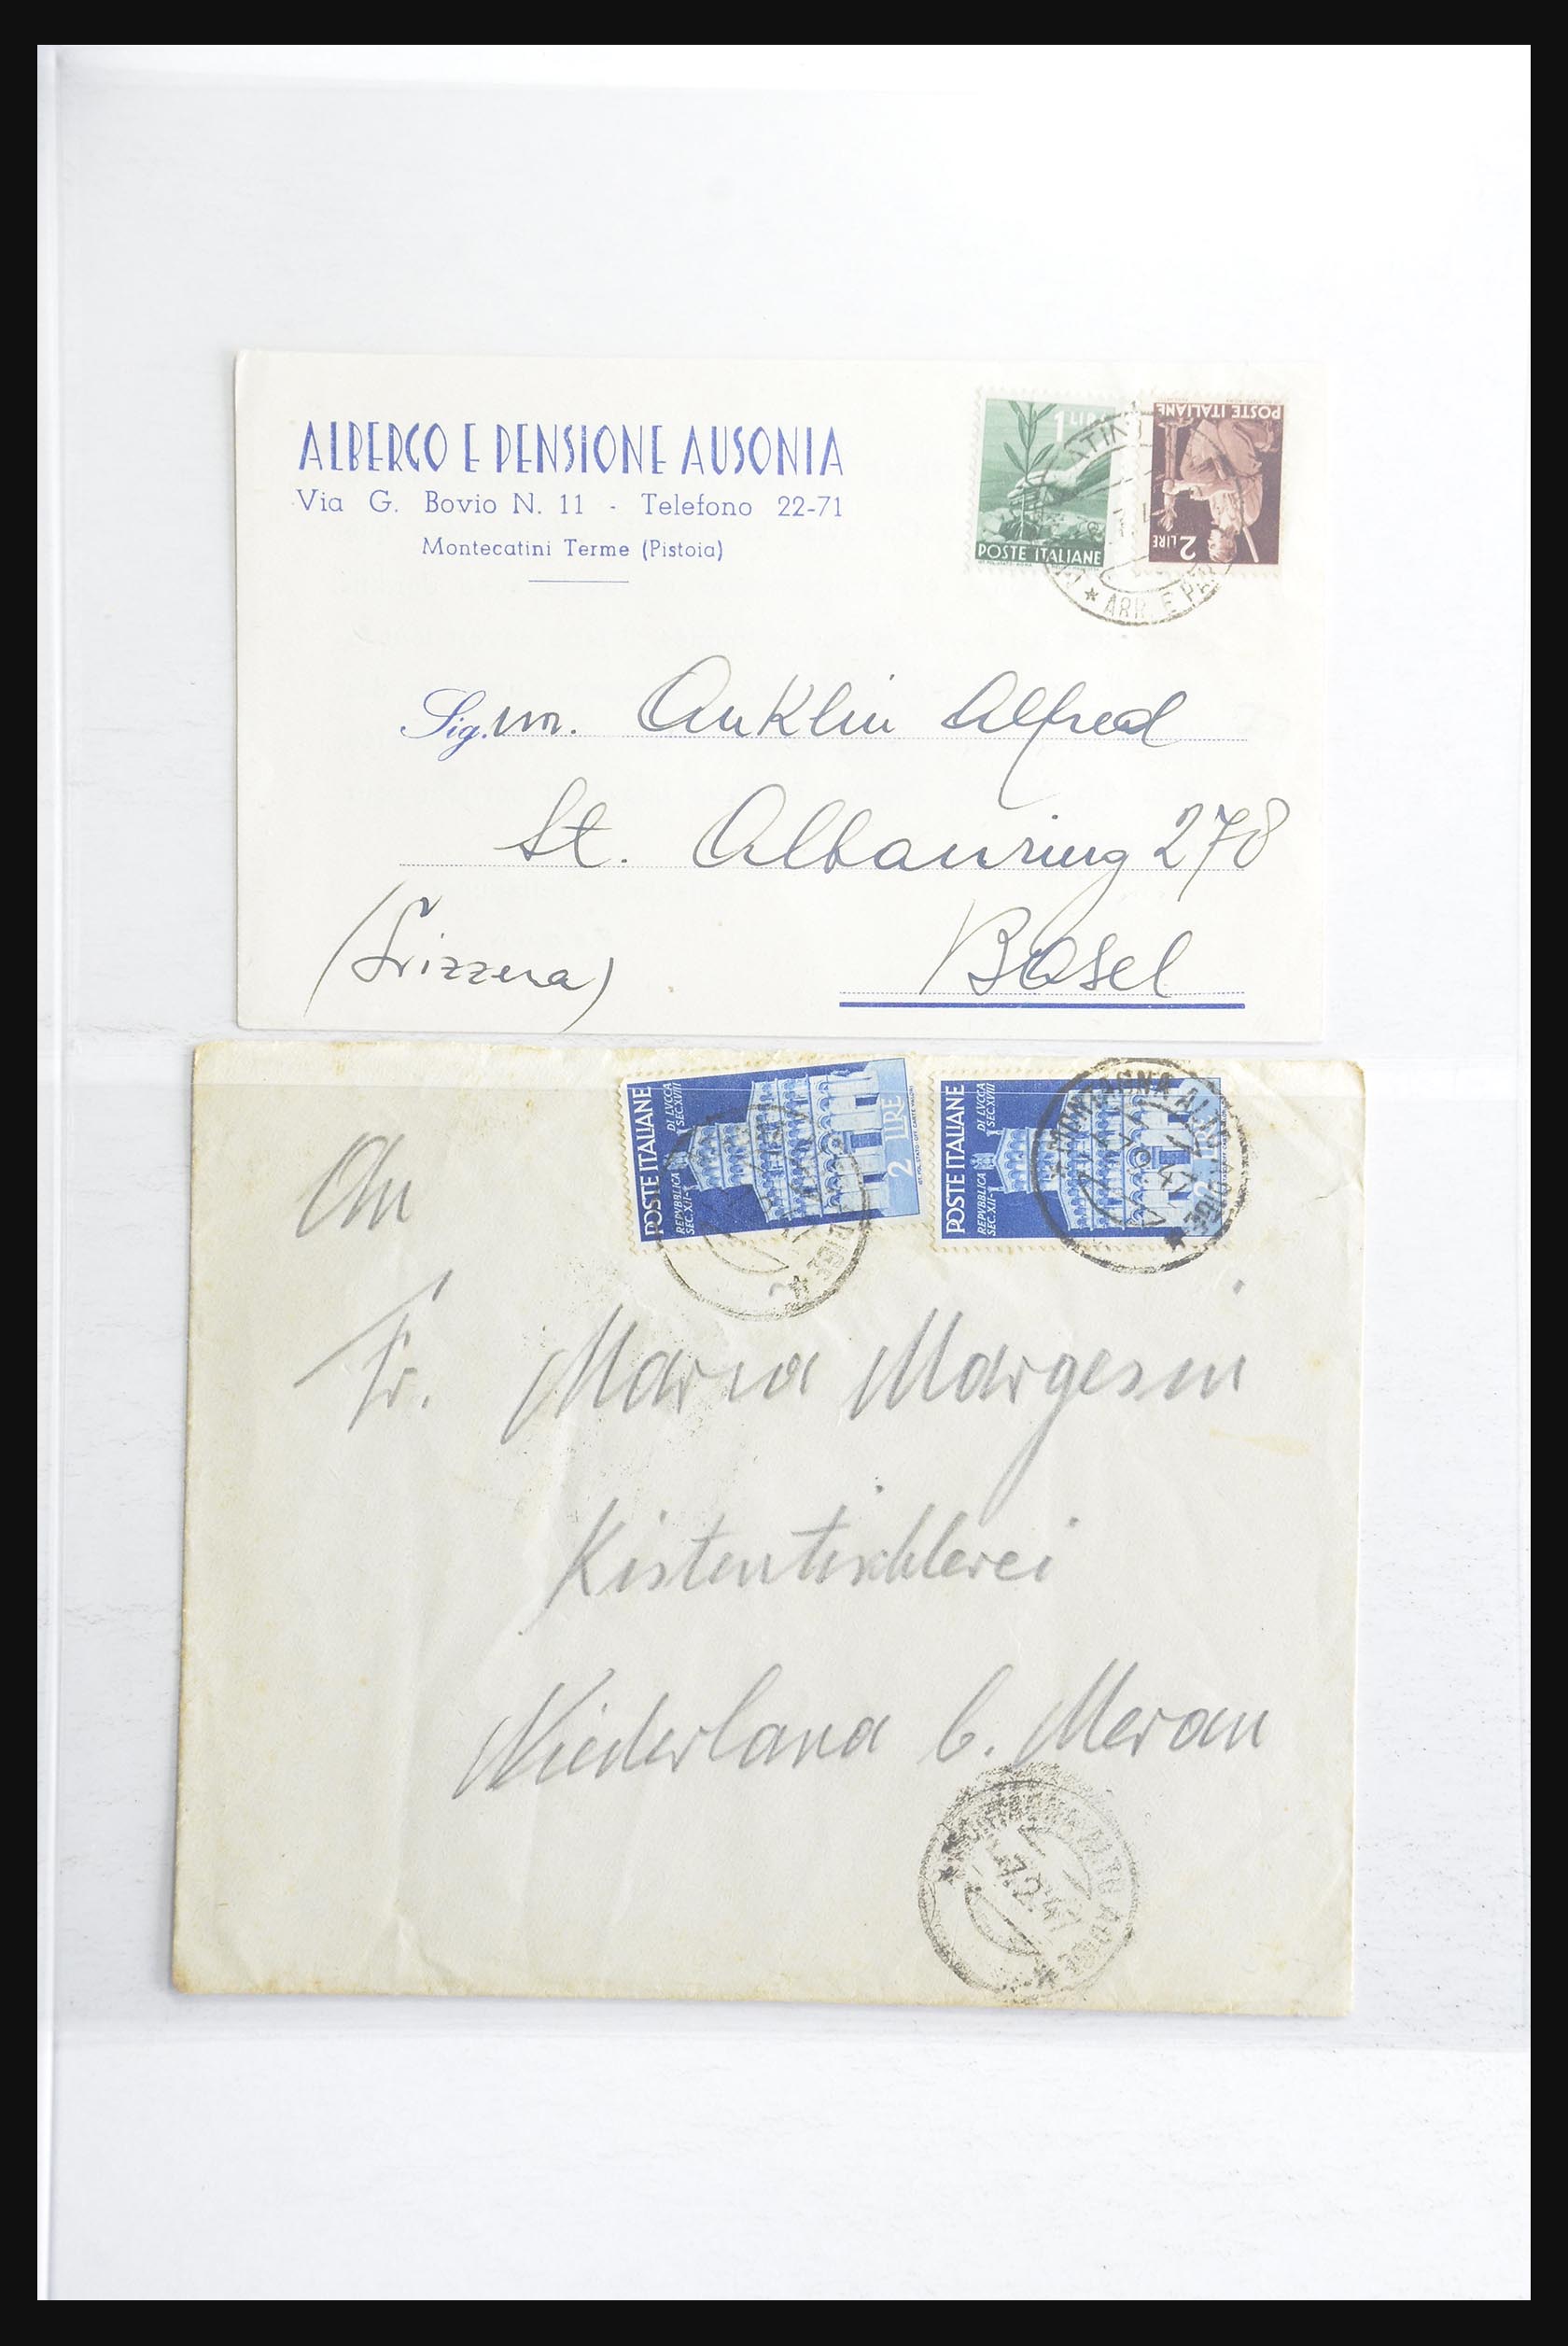 ALBERGO E PENSIONE AUSONIA
Via G. Bovio N. 11 - Telefono 22-71
Montecatini Terme (Pistoia)
1 LIRA
POSTE ITALIANE
2 LIRE
POSTE ITALIANE
ARR. E PAR
Sig. Anklin Alfred
St. Albanring 278
(Svizzera) Basel
POSTE ITALIANE
REPVBBLICA DI LVCCA
SEC. XII - SEC. XVIII
2 LIRE
POSTE ITALIANE
REPVBBLICA DI LVCCA
SEC. XII - SEC. XVIII
2 LIRE
MONTAGNA ALTO ADIGE
An
Fr. Maria Margesin
Kistentischlerei
Niederlana b. Meran
7.2.47